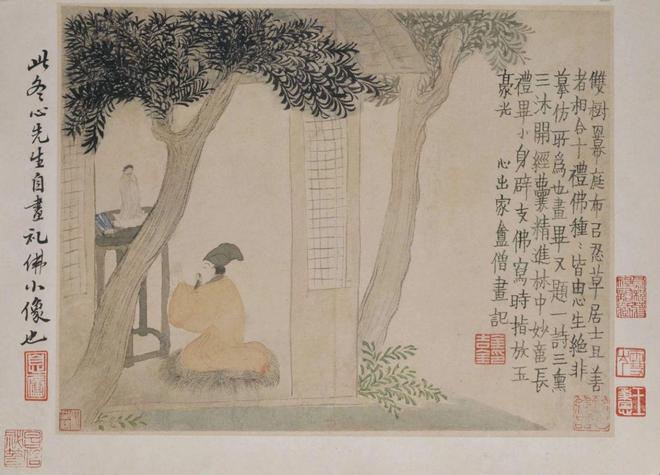 雙樹幕庭布忍草居士且善
者相合十禮佛種:皆由心生絕非
摹仿所為也畫畢又題一詩三熏
三沐開經囊精進林中妙音長
禮畢小身辟支佛寫時指放玉
豪光 心出家盦僧畫記
此冬心先生自畫礼佛小像也